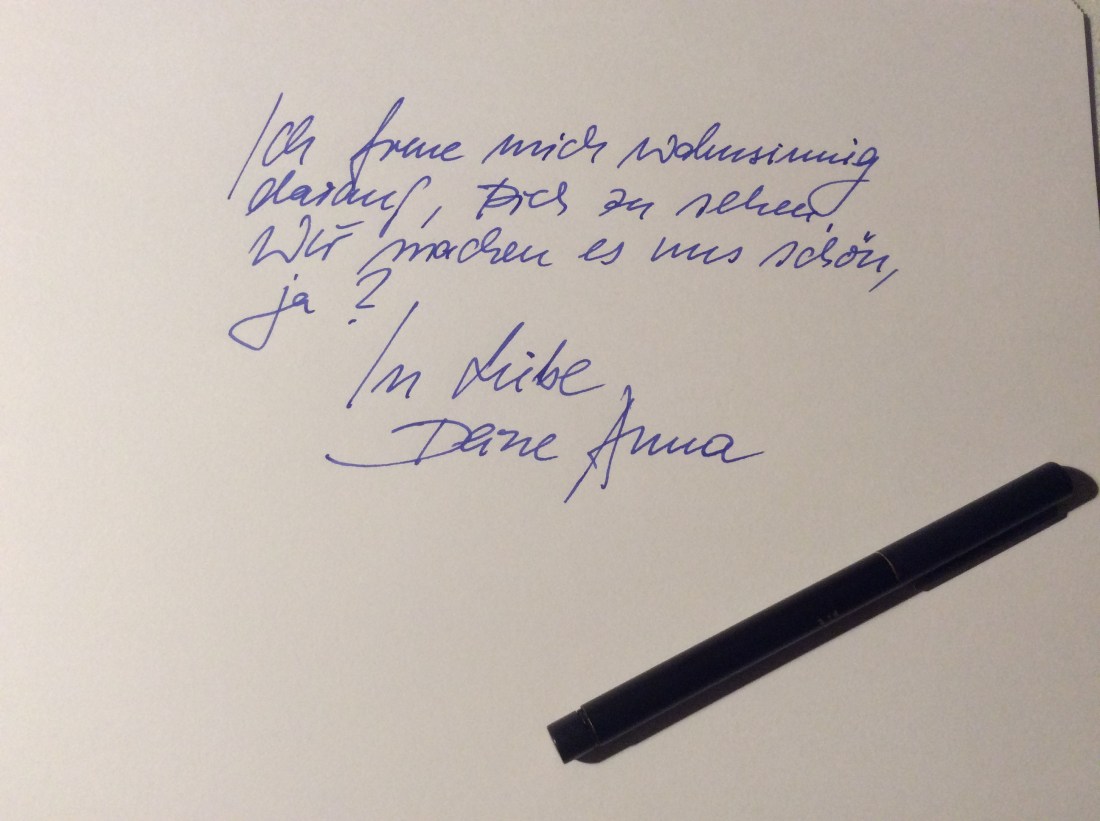 Ich freue mich wahnsinnig
darauf, Dich zu sehen.
Wir machen es uns schön,
ja?
In Liebe
Deine Anna